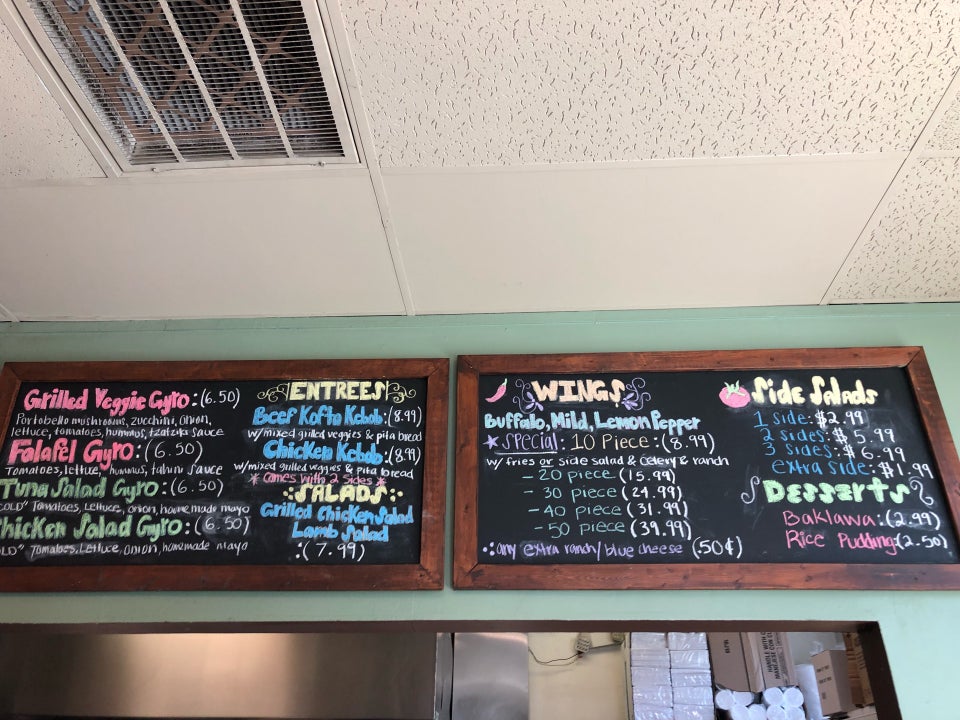 Grilled Veggie Gyro: (6.50)
Portobello mushrooms, zucchini, onion,
lettuce, tomatoes, hummus, tzatziki sauce
Falafel Gyro: (6.50)
Tomatoes, lettuce, hummus, tahini sauce
Tuna Salad Gyro: (6.50)
COLD" Tomatoes, Lettuce, onion, homemade mayo
Chicken Salad Gyro: (6.50)
OLD" Tomatoes, Lettuce, onion, homemade mayo
ENTREES
Beef Kofta Kebab: (8.99)
w/mixed grilled veggies & pita bread
Chicken Kebab: (8.99)
w/mixed grilled veggies & pita bread
* Comes with 2 Sides *
SALADS
Grilled Chicken Salad
Lamb Salad
: (7.99)
WINGS
Buffalo, Mild, Lemon Pepper
special: 10 Piece: (8.99)
w/ fries or side salad & celery & ranch
- 20 piece (15.99)
- 30 piece (24.99)
- 40 piece (31.99)
- 50 piece (39.99)
any extra ranch/blue cheese (50¢)
Side Salads
1 side: $2.99
2 sides: $5.99
3 sides: $6.99
extra side: $1.99
Desserts
Baklawa: (2.99)
Rice Pudding: (2.50)